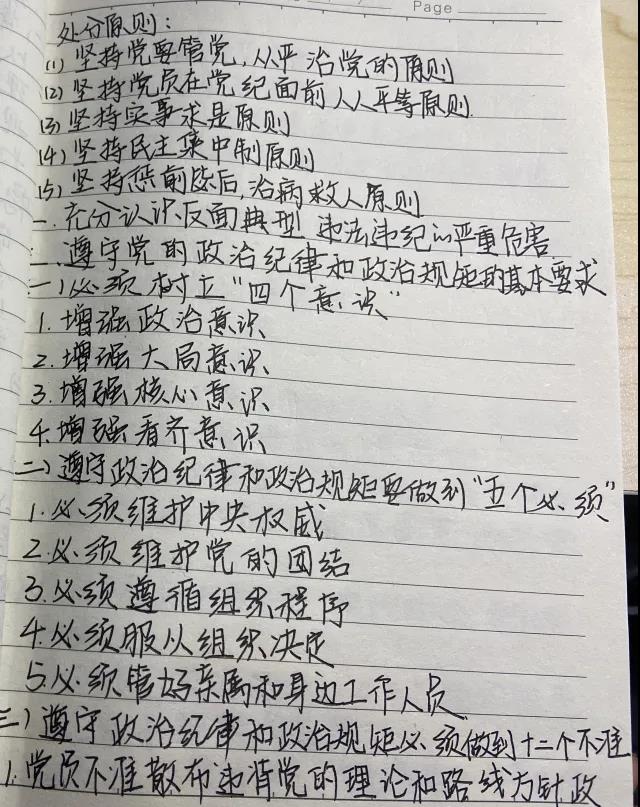 Page
处分原则：
(1) 坚持党要管党，从严治党的原则
(2) 坚持党员在党纪面前人人平等原则.
(3) 坚持实事求是原则
(4) 坚持民主集中制原则
(5) 坚持惩前毖后,治病救人原则
一. 充分认识反面典型 违法违纪的严重危害
二. 遵守党的政治纪律和政治规矩的基本要求
一) 必须树立“四个意识”
1. 增强政治意识
2. 增强大局意识
3. 增强核心意识
4. 增强看齐意识
二) 遵守政治纪律和政治规矩要做到“五个必须”
1. 必须维护中央权威
2. 必须维护党的团结
3. 必须遵循组织程序
4. 必须服从组织决定
5. 必须管好亲属和身边工作人员
三) 遵守政治纪律和政治规矩必须做到十二个不准
1. 党员不准散布违背党的理论和路线方针政